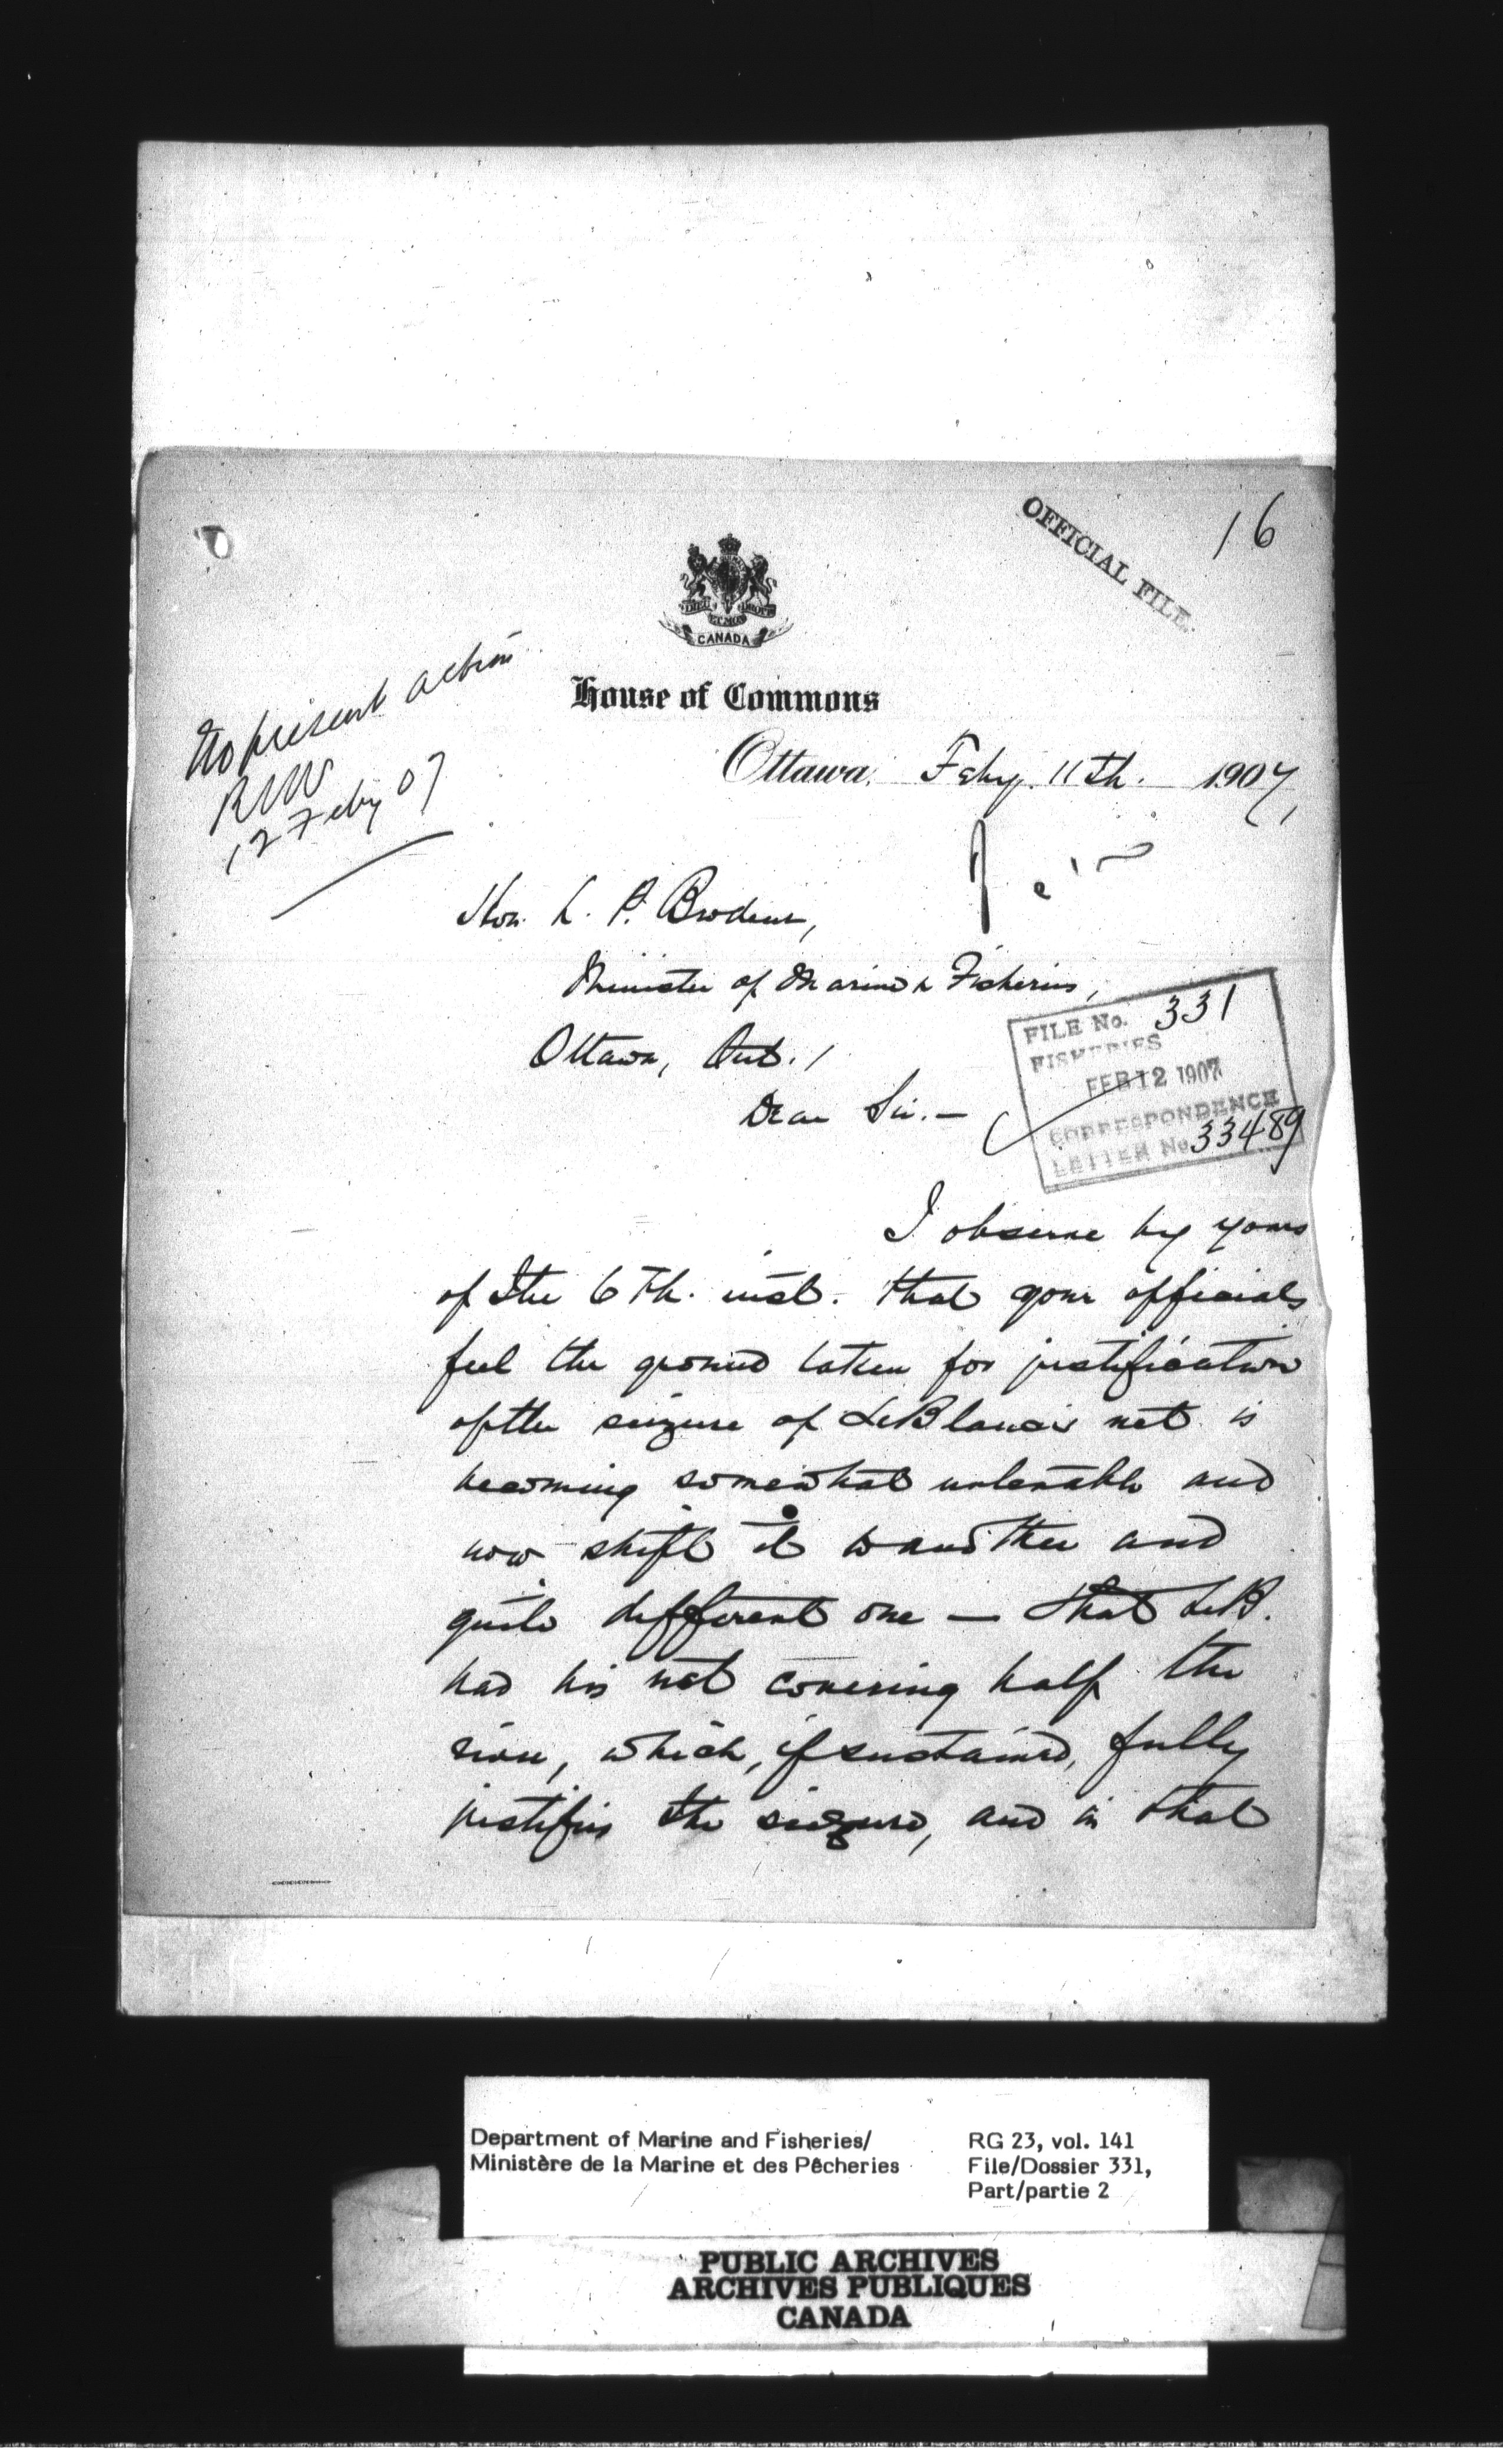 16
OFFICIAL FILE.
DIEU ET MON DROIT
CANADA
House of Commons
No present action
RNW
12 Feby 07
Ottawa, Feby. 11th. 1907,
Hon. L. P. Brodeur,
Minister of Marine & Fisheries,
Ottawa, Ont. /
FILE No. 331
FISHERIES
FEB 12 1907
CORRESPONDENCE
LETTER No. 33489
Dear Sir. —
I observe by yours
of the 6th. inst. that your officials
feel the ground taken for justification
of the seizure of LeBlanc's net is
becoming somewhat untenable and
now shift it to another and
quite different one — that LeB.
had his net covering half the
river, which, if sustained, fully
justifies the seizure, and in that
Department of Marine and Fisheries/
Ministère de la Marine et des Pêcheries
RG 23, vol. 141
File/Dossier 331,
Part/partie 2
PUBLIC ARCHIVES
ARCHIVES PUBLIQUES
CANADA